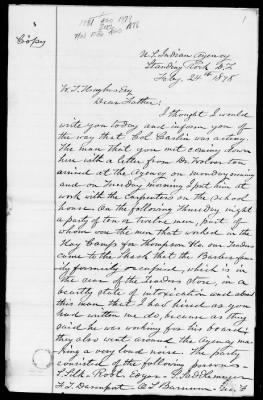 Copy
U.S. Indian Agency
Standing Rock D.T.
Feby 24th 1878
W. T. Hughes
Dear Father:
I thought I would
write you today and inform you of
the way that Col Carlin was acting.
The man that you met coming down
here with a letter from Dr. Wolverton
arrived at the Agency on monday evening
and on Tuesday morning I put him at
work with the Carpenters on the school
house. On the following Thursday night
a party of ten or twelve men, part of
whom were the men that worked in the
Hay Camps for Thompson the our Traders
came to the Shack that the Barber fam
ily formerly occupied, which is in
the rear of the Traders store, in a
beastly state of intoxication and abused
this man that I had hired as you
had written me to, because as they
said he was working for his board
they also went around the Agency ma
king a very loud noise. The party
consisted of the following persons
F. T. Davenport